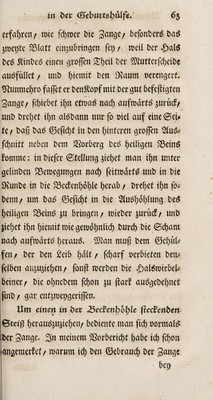 in der Geburtshülfe. 65
erfahren, wie schwer die Zange, besonders das
zweyte Blatt einzubringen sey, weil der Hals
des Kindes einen grossen Theil der Mutterscheide
ausfüllet, und hiemit den Raum verengert.
Nunmehro fasset er den Kopf mit der gut befestigten
Zange, schiebet ihn etwas nach aufwärts zurück,
und drehet ihn alsdann nur so viel auf eine Sei-
te, daß das Gesicht in den hinteren grossen Aus-
schnitt neben dem Vorberg des heiligen Beins
komme: in dieser Stellung ziehet man ihn unter
gelinden Bewegungen nach seitwärts und in die
Runde in die Beckenhöhle herab, drehet ihn so-
denn, um das Gesicht in die Aushöhlung des
heiligen Beins zu bringen, wieder zurück, und
ziehet ihn hiemit wie gewöhnlich durch die Scham
nach aufwärts heraus. Man muß dem Gehül-
fen, der den Leib hält, scharf verbieten den-
selben anzuziehen, sonst werden die Halswirbel-
beiner, die ohnedem schon zu stark ausgedehnet
sind, gar entzweygerissen.
Um einen in der Beckenhöhle steckenden
Steiß herauszuziehen, bediente man sich vormals
der Zange. In meinem Vorbericht habe ich schon
angemerket, warum ich den Gebrauch der Zange
bey